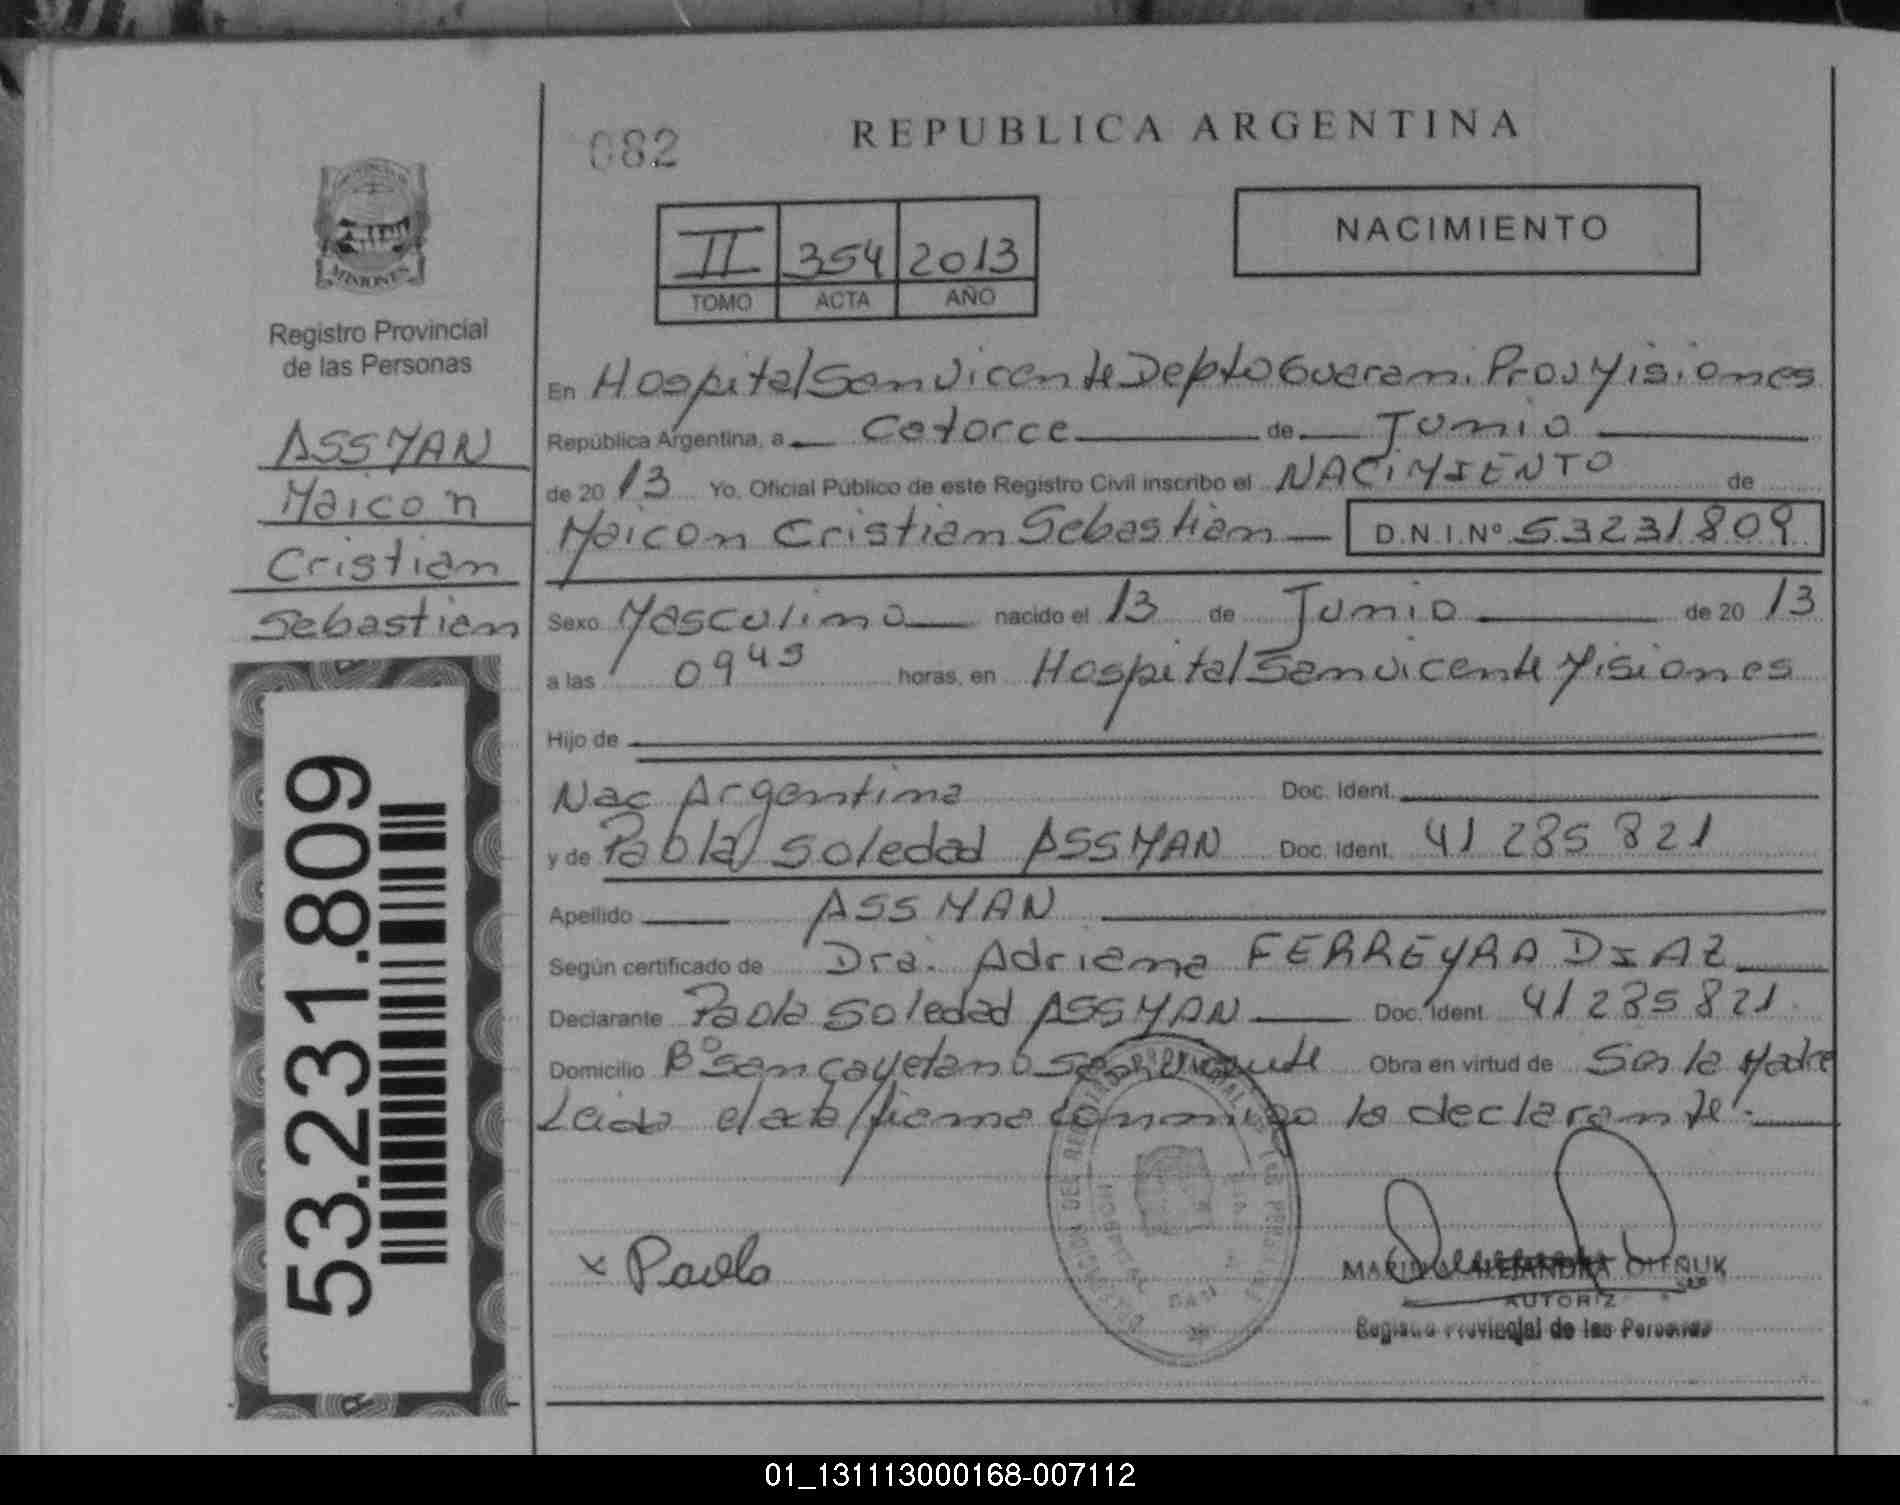 082
REPUBLICA ARGENTINA
NACIMIENTO
II 354 2013
TOMO ACTA AÑO
MISIONES
Registro Provincial
de las Personas
ASSMAN
Maicon
Cristian
Sebastian
53.231.809
En Hospital San Vicente Depto Guarani Prov Misiones
República Argentina, a catorce de Junio
de 20 13 Yo, Oficial Público de este Registro Civil inscribo el NACIMIENTO de
Maicon Cristian Sebastian D.N.I.Nº 53231809
Sexo Masculino nacido el 13 de Junio de 20 13
a las 0945 horas, en Hospital San Vicente Misiones
Hijo de
Nac Argentina Doc. Ident.
y de Paola Soledad ASSMAN Doc. Ident. 41 285 821
Apellido ASSMAN
Según certificado de Dra. Adriana FERREYRA DIAZ
Declarante Paola Soledad ASSMAN Doc. Ident. 41 285 821
Domicilio Bº San Cayetano San Vicente Obra en virtud de Ser la Madre
Leida el acta firma conmigo la declarante.
x Paola
ALEJANDRA
Registro Provincial de las Personas
01_131113000168-007112